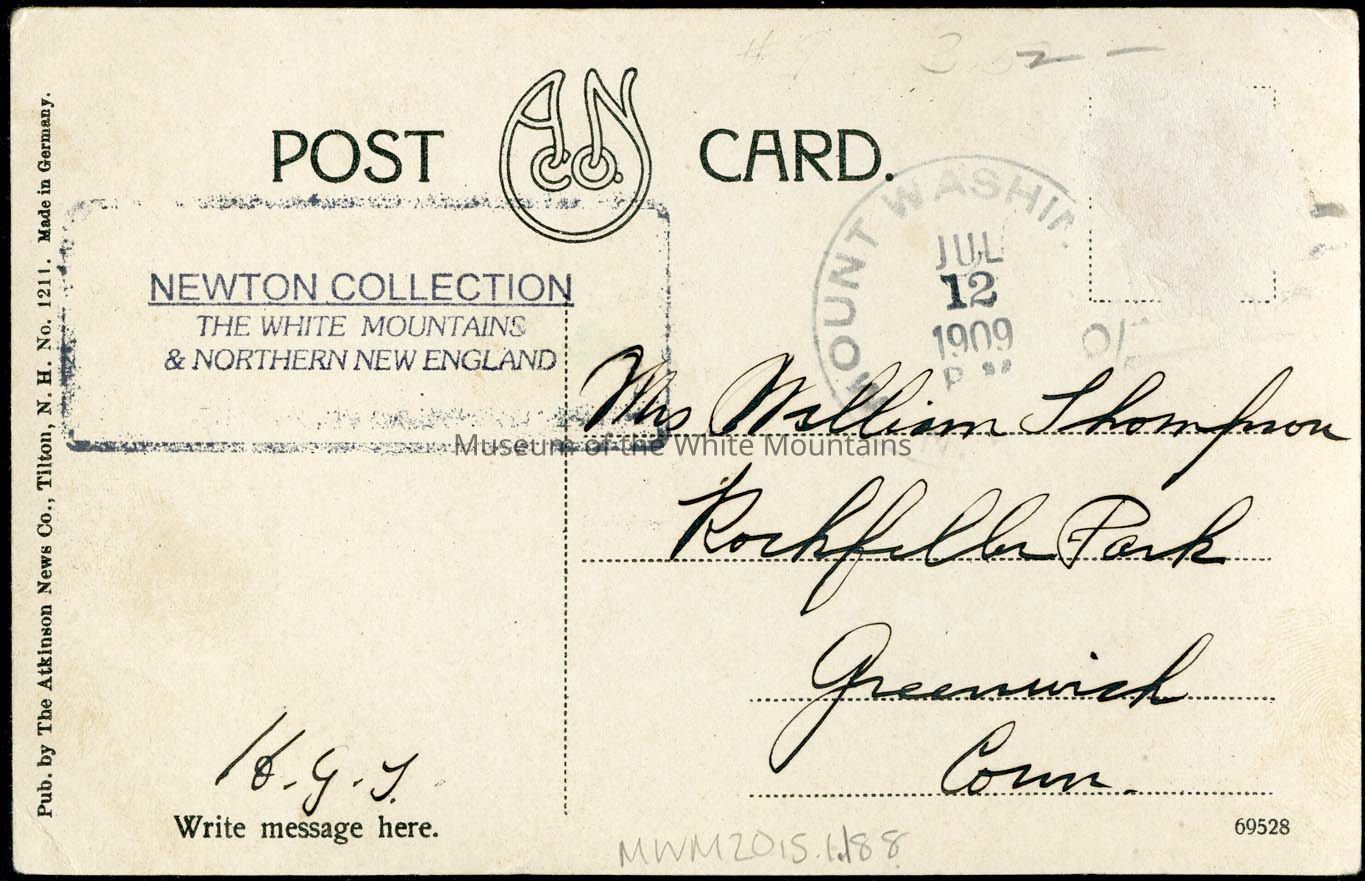 # 9
POST A.N.Co. CARD.
MOUNT WASHIN
JUL
12
1909
P M
NEWTON COLLECTION
THE WHITE MOUNTAINS
& NORTHERN NEW ENGLAND
Mrs William Thompson
Museum of the White Mountains
Rockfeller Park
Greenwich
Conn.
H.G.T.
Write message here.
69528
MWM2015.1.188
Pub. by The Atkinson News Co., Tilton, N. H. No. 1211. Made in Germany.